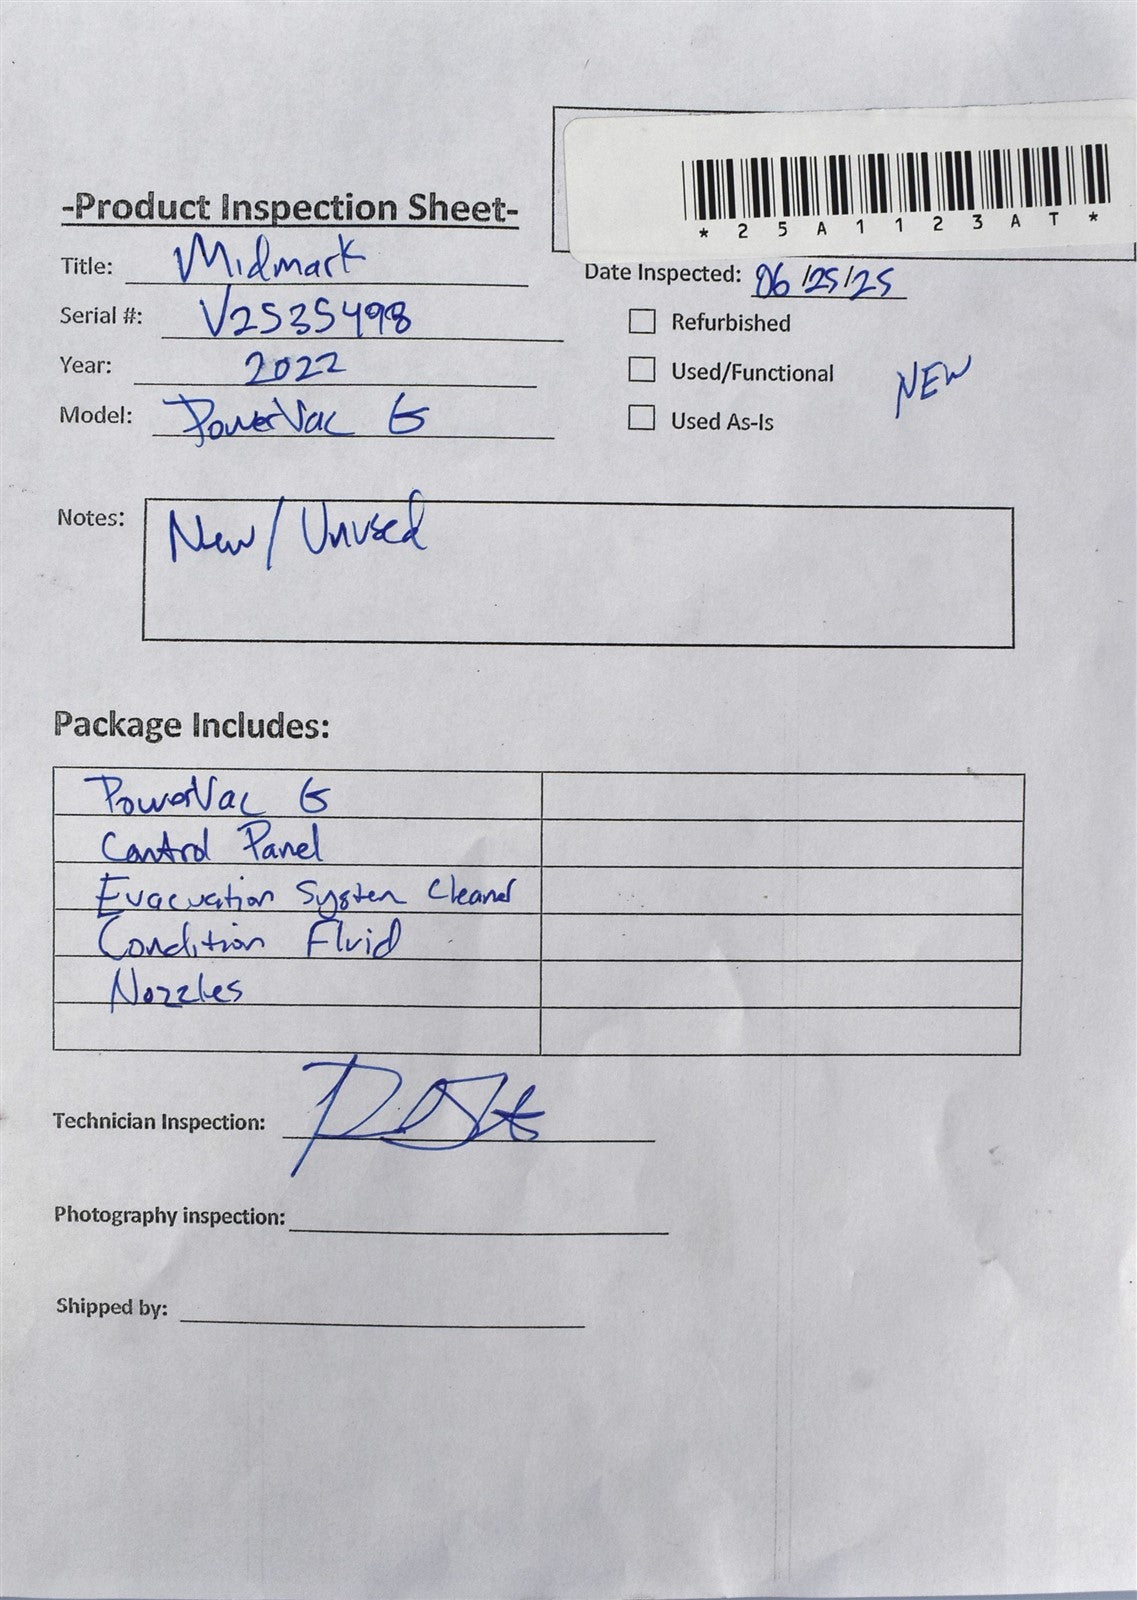 *25A1123AT*
-Product Inspection Sheet-
Title: Midmark
Date Inspected: 06/25/25
Serial #: V2535498
Refurbished
Year: 2022
Used/Functional
NEW
Model: PowerVac G
Used As-Is
Notes: New/Unused
Package Includes:
PowerVac G
Control Panel
Evacuation System Cleaner
Condition Fluid
Nozzles
Technician Inspection:
Photography inspection:
Shipped by: